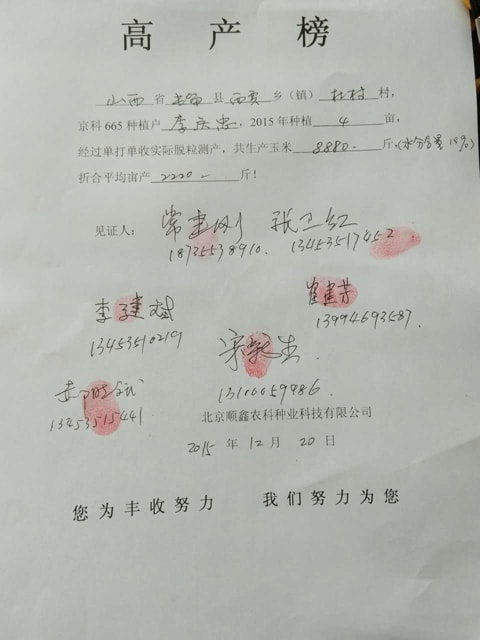 高产榜
山西省 县西 乡（镇）杜村村，
京科665种植户李庆忠，2015年种植4亩，
经过单打单收实际脱粒测产，共生产玉米8880斤(水分含量14%)
折合平均亩产2220斤！
见证人：常建刚 张卫红
18725538910. 13453517452
李建斌 崔建芳
13453510219 13994693587.
宋 生
13453515441 13100059986.
北京顺鑫农科种业科技有限公司
2015年12月20日
您为丰收努力 我们努力为您